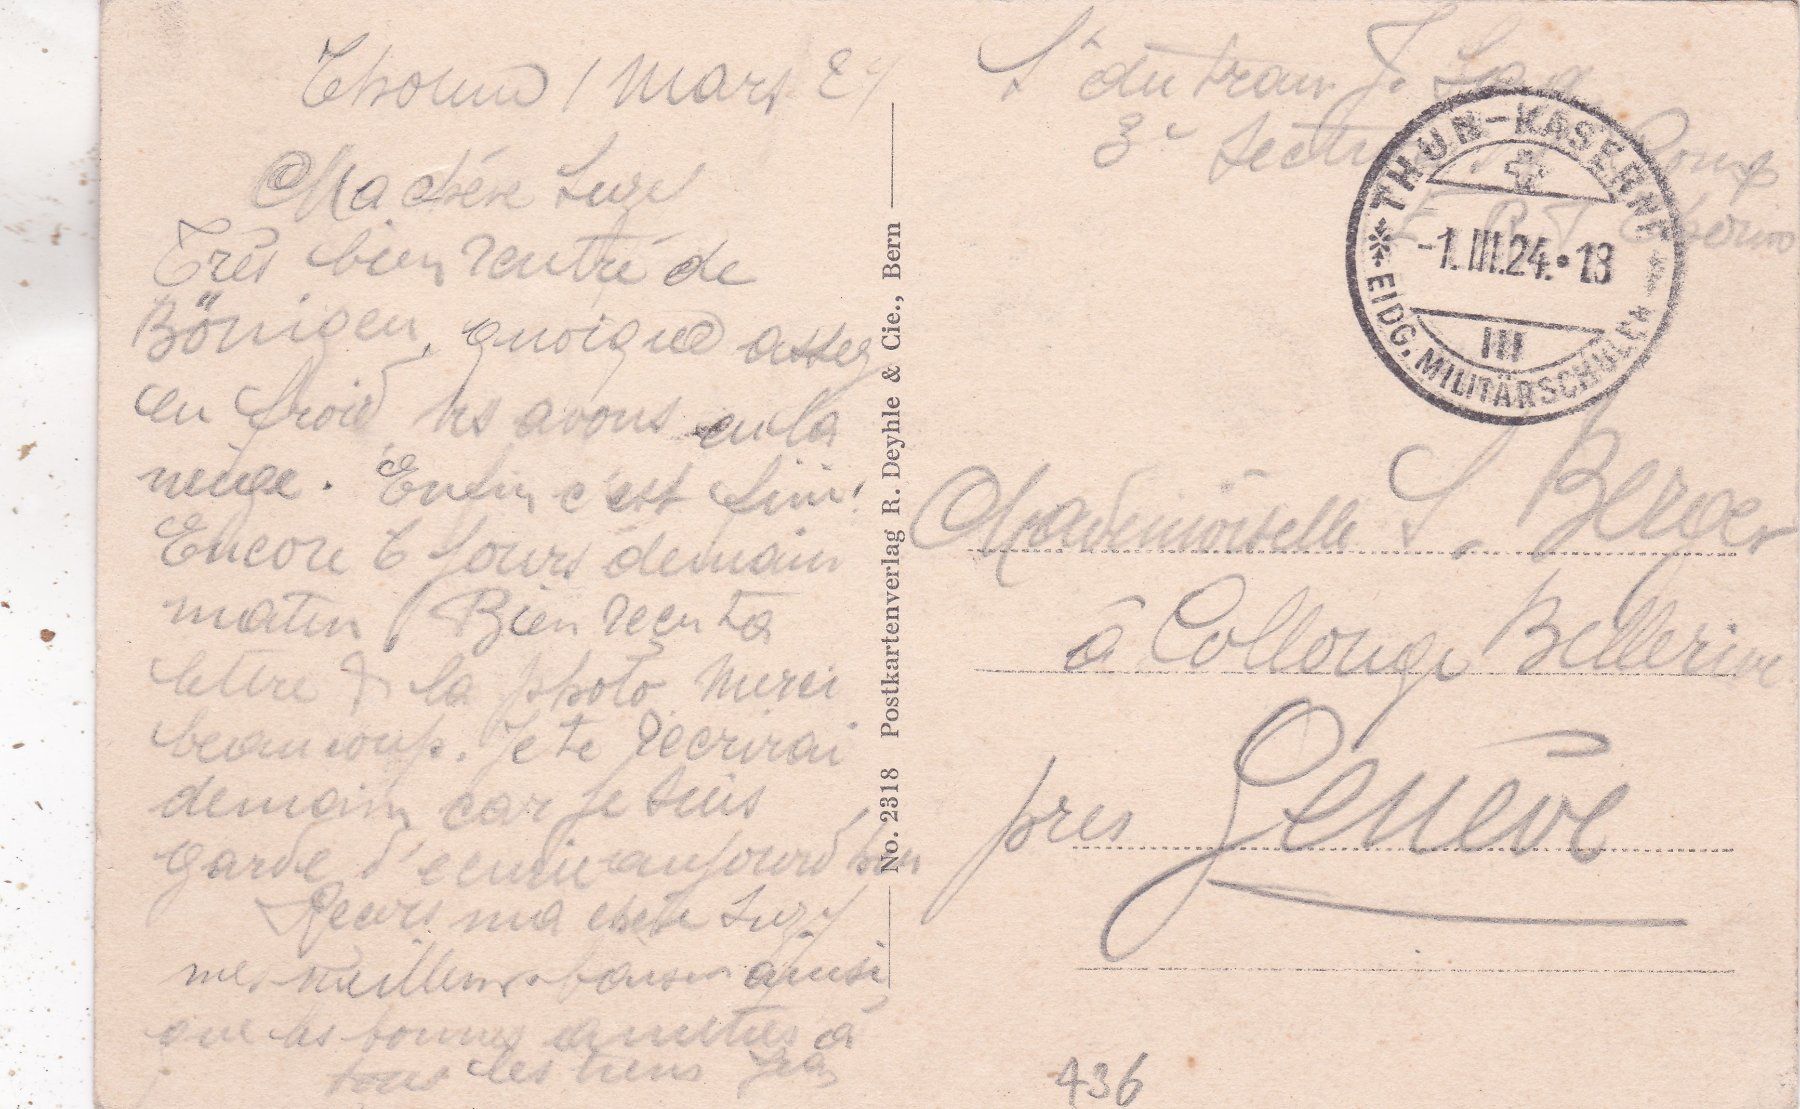 Thoune 1 Mars 24
Ma chère Suzy
Très bien rentré de
Bönigen, quoique assez
eu froid, ns avons eu la
neige. Enfin c'est fini!
Encore 6 jours demain
matin. Bien reçu ta
lettre & la photo. Merci
beaucoup. Je te récrirai
demain car je suis
garde d'écurie aujourd'hui
Reçois ma chère Suzy
mes meilleurs baisers ainsi
que les bonnes amitiés à
tous les tiens Jean
No. 2318 Postkartenverlag R. Deyhle & Cie., Bern
St du train J.
3e Section Comp
E. R. T.
THUN-KASERNE
-1.III.24.•13
III
EIDG. MILITÄRSCHULEN
Mademoiselle S. Berger
à Collonge Bellerive
près Genève
436